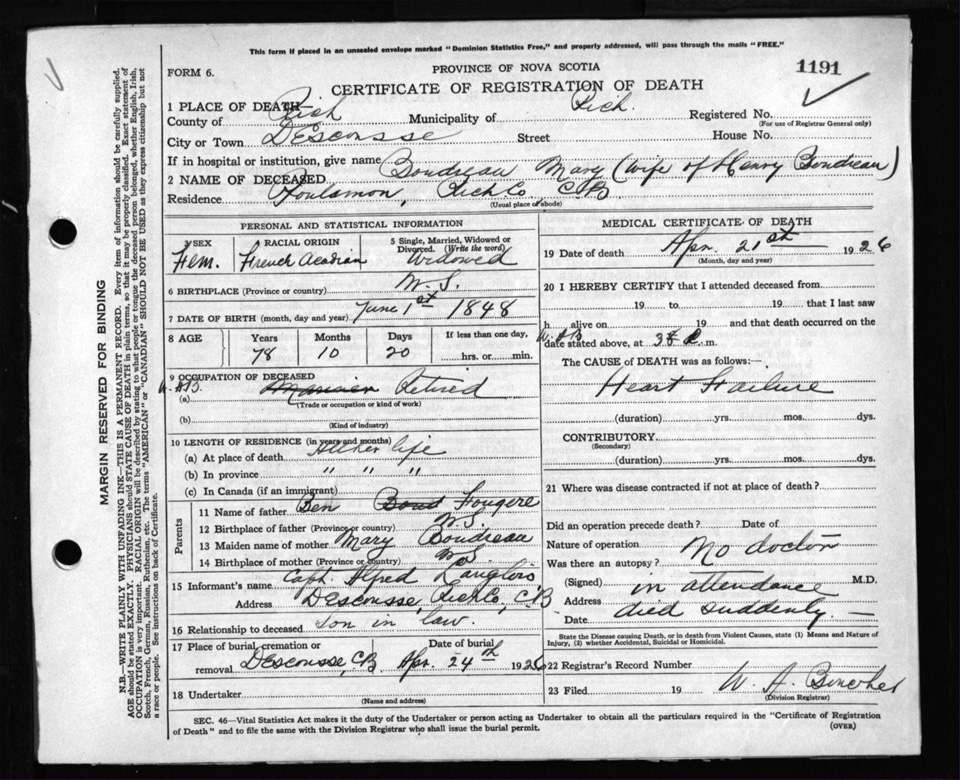 This form if placed in an unsealed envelope marked "Dominion Statistics Free," and properly addressed, will pass through the mails "FREE."
FORM 6.
PROVINCE OF NOVA SCOTIA
1191
CERTIFICATE OF REGISTRATION OF DEATH
1 PLACE OF DEATH—
County of Rich Municipality of Rich. Registered No.
(For use of Registrar General only)
City or Town DEscousse Street House No.
If in hospital or institution, give name
2 NAME OF DECEASED Boudreau Mary (wife of Henry Boudreau)
Residence Poulamon, Rich Co. C.B
(Usual place of abode)
PERSONAL AND STATISTICAL INFORMATION
3 SEX Fem.
RACIAL ORIGIN French Acadian
5 Single, Married, Widowed or Divorced. (Write the word) Widowed
6 BIRTHPLACE (Province or country) N.S.
7 DATE OF BIRTH (month, day and year) June 1st 1848
8 AGE Years Months Days If less than one day,
78 10 20 hrs. or min.
9 OCCUPATION OF DECEASED
(a) Retired
(Trade or occupation or kind of work)
(b)
(Kind of industry)
10 LENGTH OF RESIDENCE (in years and months)
(a) At place of death all her life
(b) In province " " "
(c) In Canada (if an immigrant)
Parents
11 Name of father Ben Boud Fougere
12 Birthplace of father (Province or country) N.S.
13 Maiden name of mother Mary Boudreau
14 Birthplace of mother (Province or country) N.S.
15 Informant's name Capt. Alfred Langlois,
Address DEscousse, Rich Co, C.B
16 Relationship to deceased son in law.
17 Place of burial, cremation or removal DEscousse, CB Date of burial Apr. 24th 1926
18 Undertaker
(Name and address)
MEDICAL CERTIFICATE OF DEATH
19 Date of death Apr. 21st 1926
(Month, day and year)
20 I HEREBY CERTIFY that I attended deceased from
19 to 19 that I last saw
h alive on 19 and that death occurred on the
date stated above, at m.
The CAUSE of DEATH was as follows:—
Heart Failure
(duration) yrs. mos. dys.
CONTRIBUTORY
(Secondary)
(duration) yrs. mos. dys.
21 Where was disease contracted if not at place of death?
Did an operation precede death? Date of
Nature of operation
Was there an autopsy? No doctor
(Signed) in attendance M.D.
Address died suddenly.
Date
State the Disease causing Death, or in death from Violent Causes, state (1) Means and Nature of Injury, (2) whether Accidental, Suicidal or Homicidal.
22 Registrar's Record Number
23 Filed 19 W. A.
(Division Registrar)
SEC. 46—Vital Statistics Act makes it the duty of the Undertaker or person acting as Undertaker to obtain all the particulars required in the "Certificate of Registration
of Death" and to file the same with the Division Registrar who shall issue the burial permit. (OVER)
MARGIN RESERVED FOR BINDING
N.B.—WRITE PLAINLY WITH UNFADING INK—THIS IS A PERMANENT RECORD. Every item of information should be carefully supplied.
AGE should be stated EXACTLY. PHYSICIANS should STATE CAUSE OF DEATH in plain terms, so that it may be properly classified. Exact statement of
OCCUPATION is very important. RACIAL ORIGIN will be described by stating to what people or tongue the deceased person belonged, whether English, Irish,
Scotch, French, German, Russian, Ruthenian, etc. The terms "AMERICAN" or "CANADIAN" SHOULD NOT BE USED as they express citizenship but not
a race or people. See instructions on back of Certificate.